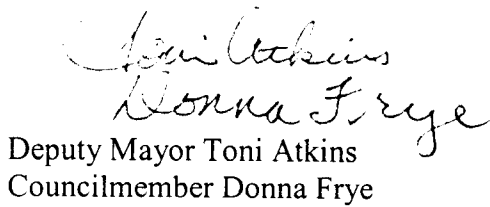 Toni Atkins
Donna Frye
Deputy Mayor Toni Atkins
Councilmember Donna Frye